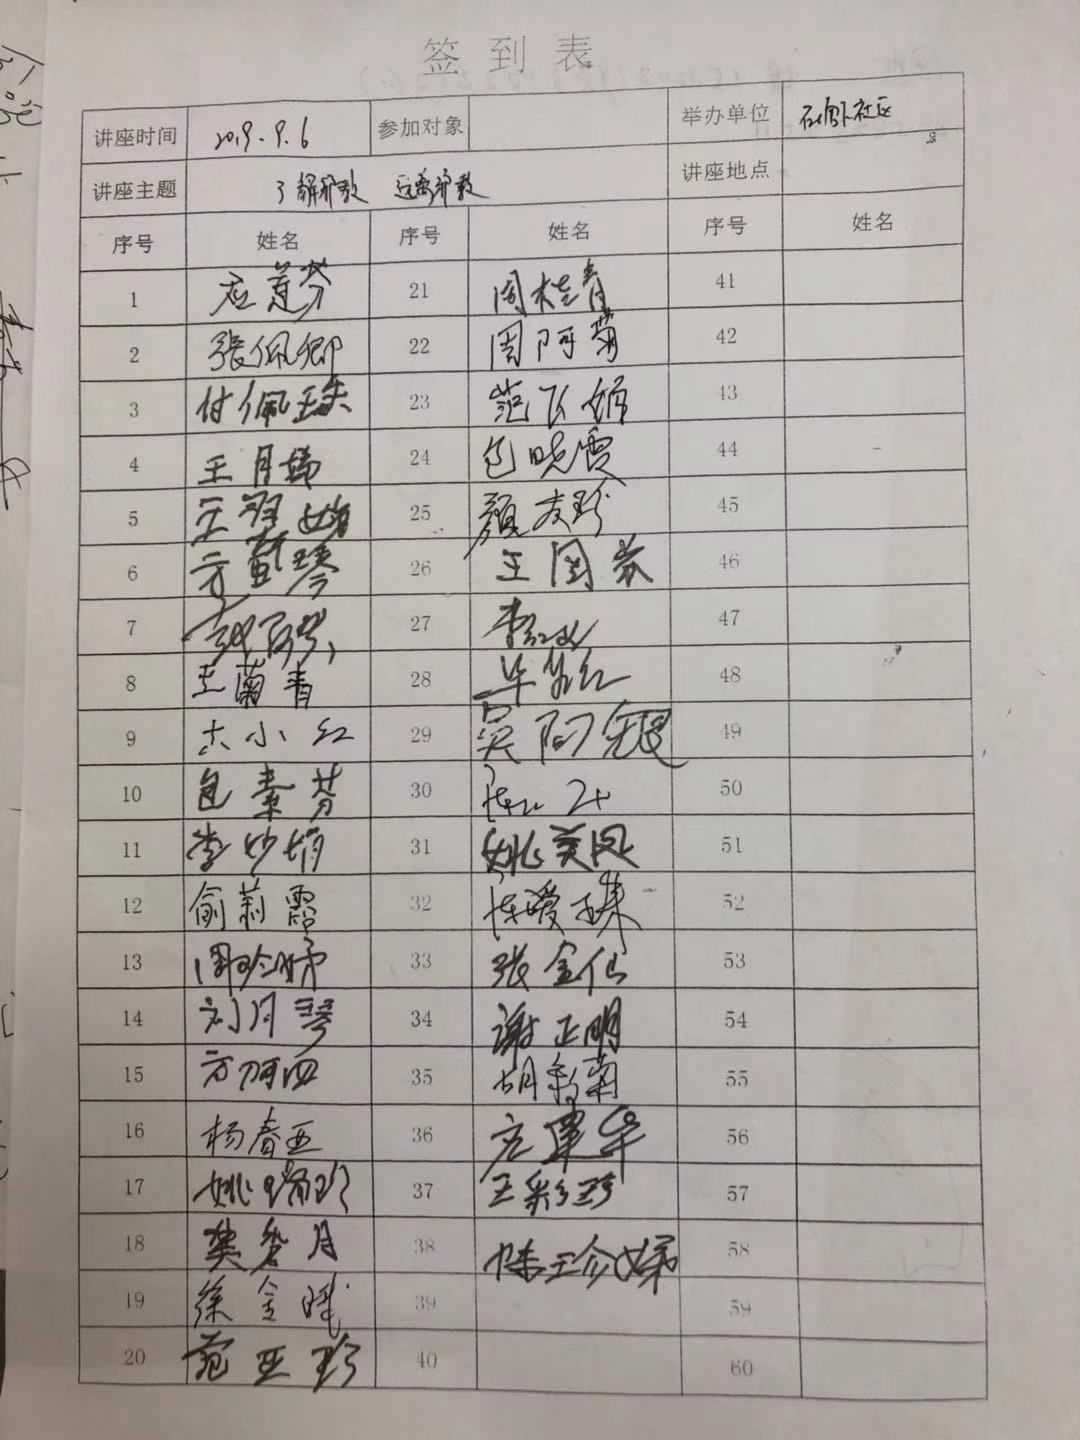 签到表
讲座时间 2019.9.6 参加对象 举办单位 社区
讲座主题 了解邪教 远离邪教 讲座地点
序号 姓名 序号 姓名 序号 姓名
1 应莲芬 21 周桂青 41
2 張佩卿 22 周阿菊 42
3 付佩珠 23 范飞娟 43
4 王月娣 24 包晓霞 44
5 王翠娥 25 顏友珍 45
6 方黄琴 26 王国芬 46
7 27 48
8 王菊青 28 毕 红 48
9 小红 29 吴阿银 49
10 包素芬 30 50
11 李妙娟 31 姚美凤 51
12 俞莉霞 32 陈爱珠 52
13 周玲娣 33 张金仙 53
14 刘月琴 34 谢正明 54
15 方阿四 35 胡彩菊 55
16 杨春亚 36 应建华 56
17 姚 珍 37 王彩珍 57
18 龚 月 38 陈玉娣 58
19 徐金 39 59
20 范亚珍 40 60